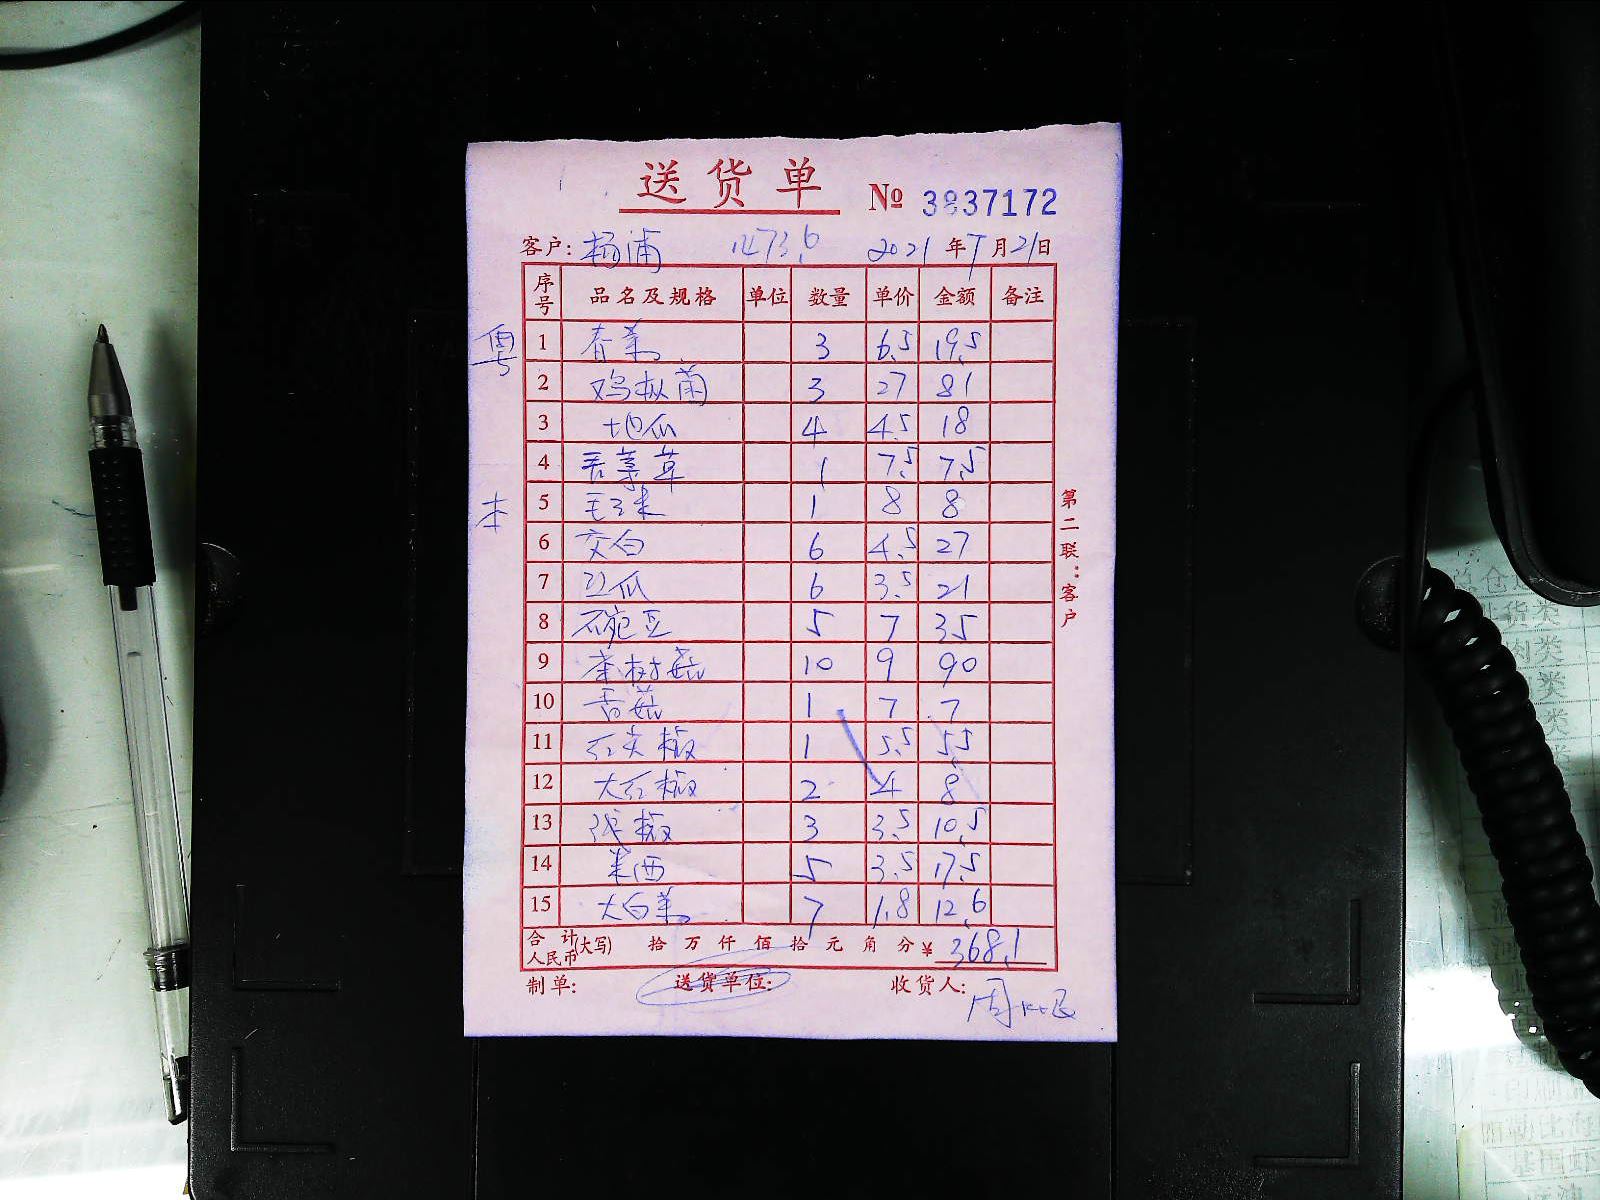 送货单 № 3837172
客户: 杨浦 1473.6 2021年7月21日
序号 品名及规格 单位 数量 单价 金额 备注
粤 1 春菜 3 6.5 19.5
2 鸡枞菌 3 27 81
3 地瓜 4 4.5 18
4 1 7.5 7.5
本 5 毛玉米 1 8 8
6 交白 6 4.5 27
7 瓜 6 3.5 21
8 豆 5 7 35
9 茶树菇 10 9 90
10 香菇 1 7 7
11 红尖椒 1 5.5 5.5
12 大红椒 2 4 8
13 椒 3 3.5 10.5
14 西 5 3.5 17.5
15 大白菜 7 1.8 12.6
合计人民币(大写) 拾 万 仟 佰 拾 元 角 分 ¥ 368.1
制单: 送货单位: 收货人: 周
第二联:客户